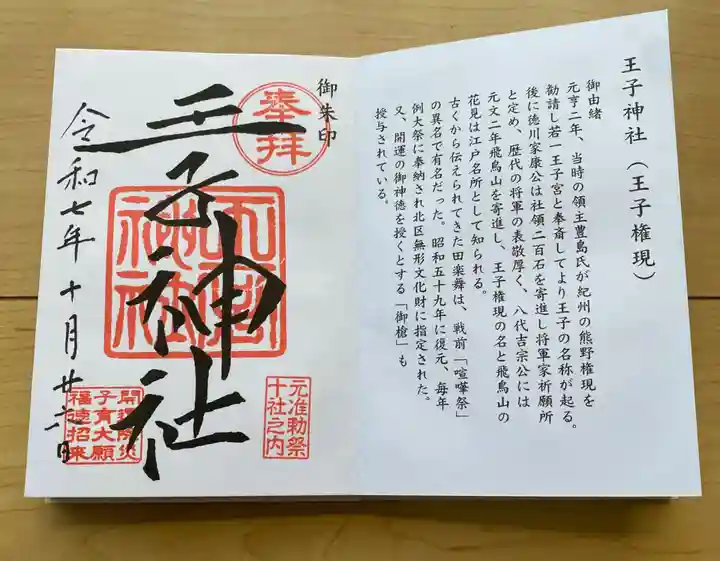 王子神社（王子権現）
御由緒
元亨二年、当時の領主豊島氏が紀州の熊野権現を
勧請し若一王子宮と奉斎してより王子の名称が起る。
後に徳川家康公は社領二百石を寄進し将軍家祈願所
と定め、歴代の将軍の表敬厚く、八代吉宗公には
元文二年飛鳥山を寄進し、王子権現の名と飛鳥山の
花見は江戸名所として知られる。
古くから伝えられてきた田楽舞は、戦前「喧嘩祭」
の異名で有名だった。昭和五十九年に復元、毎年
例大祭に奉納され北区無形文化財に指定された。
又、開運の御神徳を授くとする「御槍」も
授与されている。
御朱印
奉拝
王子神社
王子神社
元准勅祭
十社之内
令和七年十月廿六日
子育大願
福徳招来